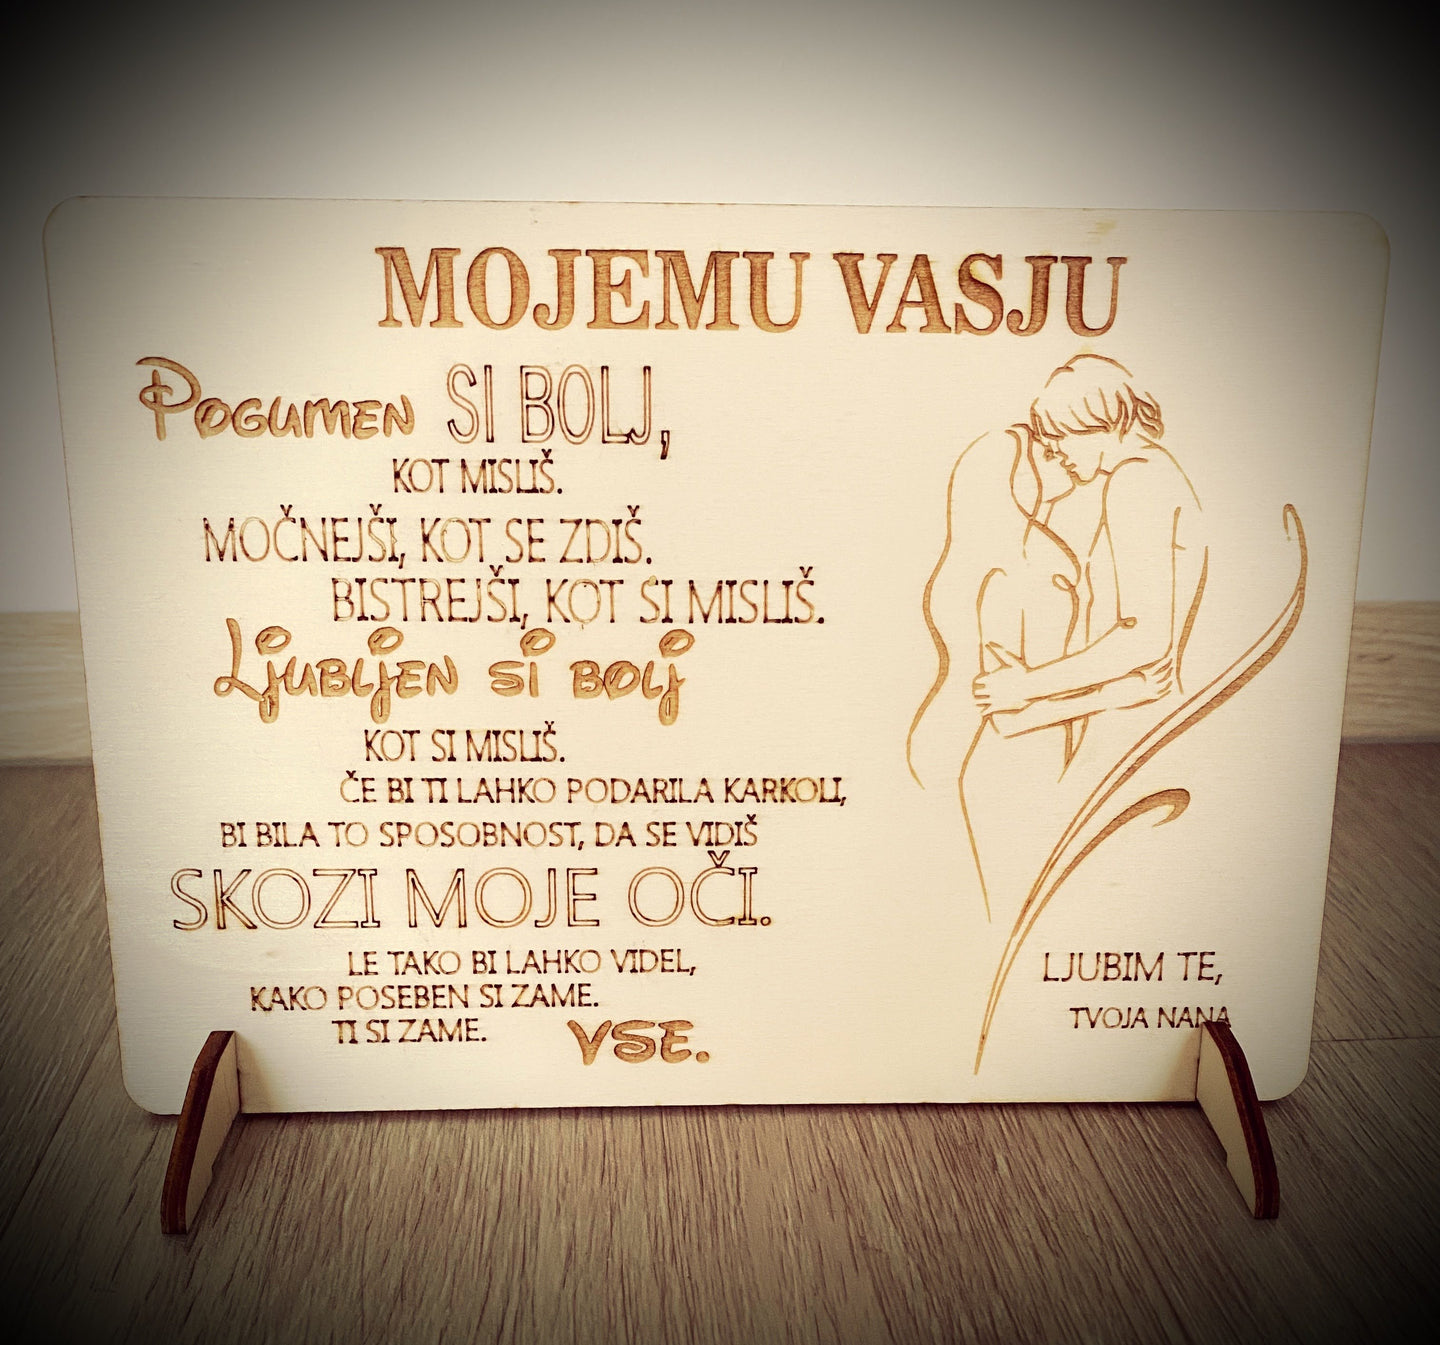 MOJEMU VASJU
POGUMEN SI BOLJ,
KOT MISLIŠ.
MOČNEJŠI, KOT SE ZDIŠ.
BISTREJŠI, KOT SI MISLIŠ.
LJUBLJEN SI BOLJ
KOT SI MISLIŠ.
ČE BI TI LAHKO PODARILA KARKOLI,
BI BILA TO SPOSOBNOST, DA SE VIDIŠ
SKOZI MOJE OČI.
LE TAKO BI LAHKO VIDEL,
KAKO POSEBEN SI ZAME.
TI SI ZAME. VSE.
LJUBIM TE,
TVOJA NANA